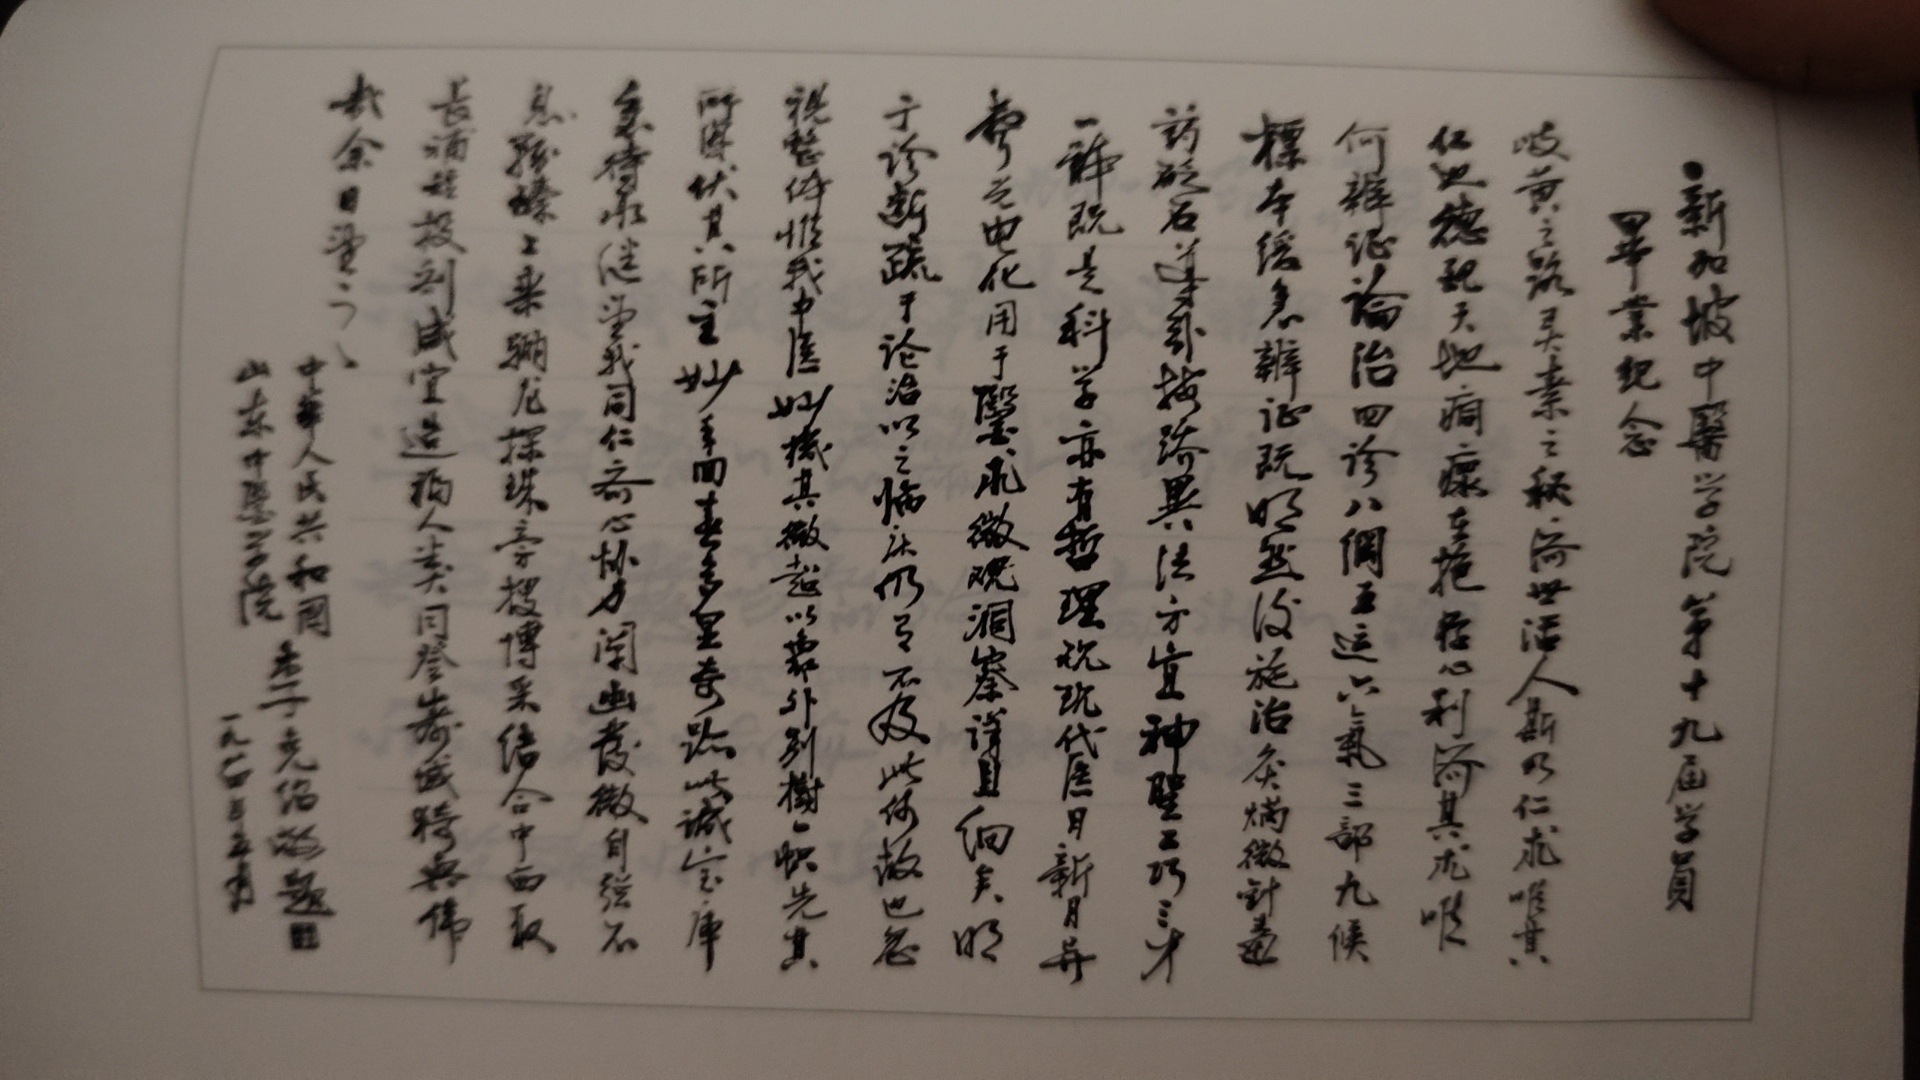 新加坡中醫学院第十九届学員
畢業纪念
岐黄之路灵素之秘济世活人斯乃仁术唯其
仁也德配天地痌瘝在抱存心利济其术唯
何辨证論治四诊八綱五运六氣三部九候
標本缓急辨证既明然後施治灸焫微針毒
药砭石導引按蹻異法方宜神聖工巧三才
一辞既是科学亦有哲理祝现代医日新月异
声光电化用于醫术微观洞察詳且细矣明
于诊断疏于论治以之临床仍有不及此何故也忽
視整体惟我中医妙機其微超以象外别樹一帜先其
所因伏其所主妙手回春多呈奇跡此诚宝库
急待承继望我同仁齐心协力阐幽發微自强不
息
上来
探珠旁搜博采结合中西取
長補短
咸宜造福人类同登寿域猗与偉
哉余日望之
中華人民共和國
山东中醫学院
克绍敬题
一九八四年五月